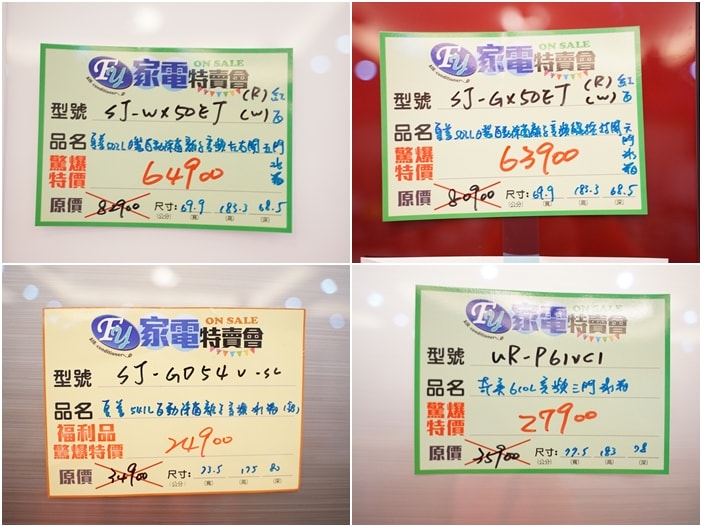 FU 家電特賣會
ON SALE
Air conditioner
型號 SJ-WX50ET (R)紅 (W)白
品名 夏普502L自動除菌離子變頻左右開五門冰箱
驚爆特價 64900
原價 82900 尺寸: 69.9 183.3 68.5
(公分) (寬) (高) (深)
FU 家電特賣會
ON SALE
Air conditioner
型號 SJ-GX50ET (R)紅 (W)白
品名 夏普502L自動除菌離子變頻
驚爆特價 63900
原價 80900 尺寸: 69.9 183.3 68.5
(公分) (寬) (高) (深)
FU 家電特賣會
ON SALE
Air conditioner
型號 SJ-GD54V-SL
品名 夏普541L自動除菌離子變頻冰箱(銀)
福利品
驚爆特價 24900
原價 34900 尺寸: 175 80
(公分) (寬) (高) (深)
FU 家電特賣會
ON SALE
Air conditioner
型號 UR-P61VC1
品名 奇美610L變頻三門冰箱
驚爆特價 27900
原價 35900 尺寸: 77.5 183 78
(公分) (寬) (高) (深)